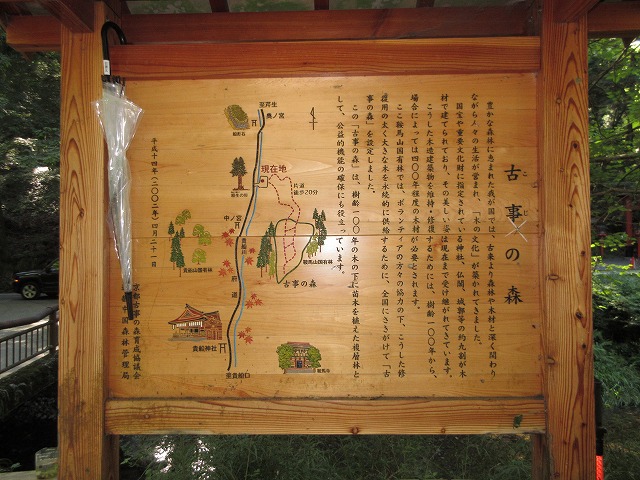 古事の森
こ
じ
豊かな森林に恵まれた我が国では、古来より森林や木材と深く関わり
ながら人々の生活が営まれ、「木の文化」が築かれてきました。
国宝や重要文化財に指定されている神社、仏閣、城郭等の約九割が木
材で建てられており、その美しい姿は現在まで受け継がれてきています。
こうした木造建築物を維持・修復するためには、樹齢一〇〇年から、
場合によっては四〇〇年程度の木材が必要とされます。
ここ鞍馬山国有林では、ボランティアの方々の協力の下、こうした修
復用の太く大きな木を永続的に供給するために、全国にさきがけて「古
事の森」を設定しました。
この「古事の森」は、樹齢一〇〇年の木の下に苗木を植えた複層林と
して、公益的機能の確保にも役立っています。
平成十四年(二〇〇二年)四月二十一日
京都古事の森育成協議会
近畿中国森林管理局
至芹生
奥ノ宮
船形石
現在地
片道
徒歩20分
相生の杉
中ノ宮
貴船川
府道
貴船山国有林
鞍馬山国有林
古事の森
貴船神社
至貴船口
鞍馬寺